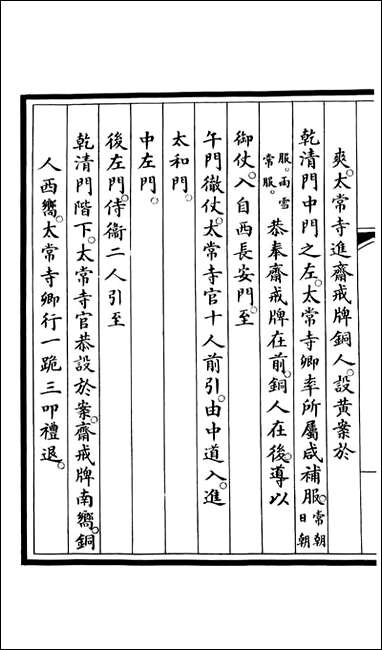 爽。太常寺進齋戒牌銅人。設黃案於
乾清門中門之左。太常寺卿率所屬咸補服。常朝日朝
服。雨雪常服。恭奉齋戒牌在前。銅人在後。導以
御仗。入自西長安門。至
午門徹仗。太常寺官十人前引。由中道入。進
太和門。
中左門。
後左門。侍衞二人引至
乾清門階下。太常寺官恭設於案。齋戒牌南嚮。銅
人西嚮。太常寺卿行一跪三叩禮退。